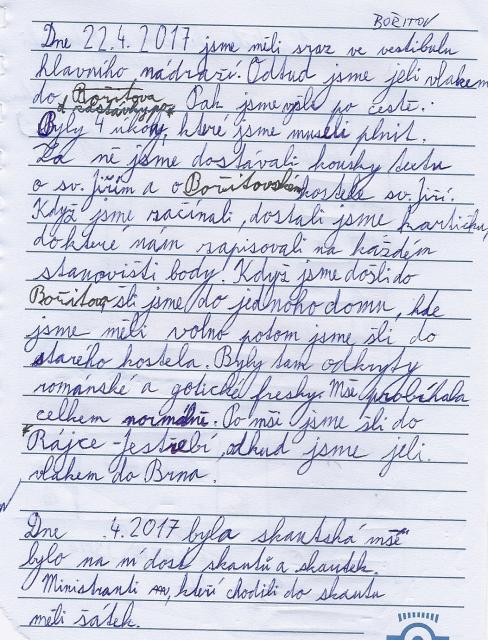 BOŘITOV
Dne 22.4. 2017 jsme měli sraz ve vestibulu
hlavního nádraží. Odtud jsme jeli vlakem
do Bořitova Pak jsme vyšli po cestě.
Byly 4 úkoly, které jsme museli plnit.
Za ně jsme dostávali kousky textu
o sv. Jiřím a o Bořitovském kostele sv. Jiří.
Když jsme začínali, dostali jsme kartičku,
do které nám zapisovali na každém
stanovišti body. Když jsme došli do
Bořitova šli jsme do jednoho domu, kde
jsme měli volno potom jsme šli do
starého kostela. Byly tam odkryty
románské a gotické fresky. Mše probíhala
celkem normálně. Po mši jsme šli do
Rájce-Jestřebí, odkud jsme jeli
vlakem do Brna.
Dne .4.2017 byla skautská mše
bylo na ní dost skautů a skautek.
Ministranti, kteří chodili do skautu
měli šátek.